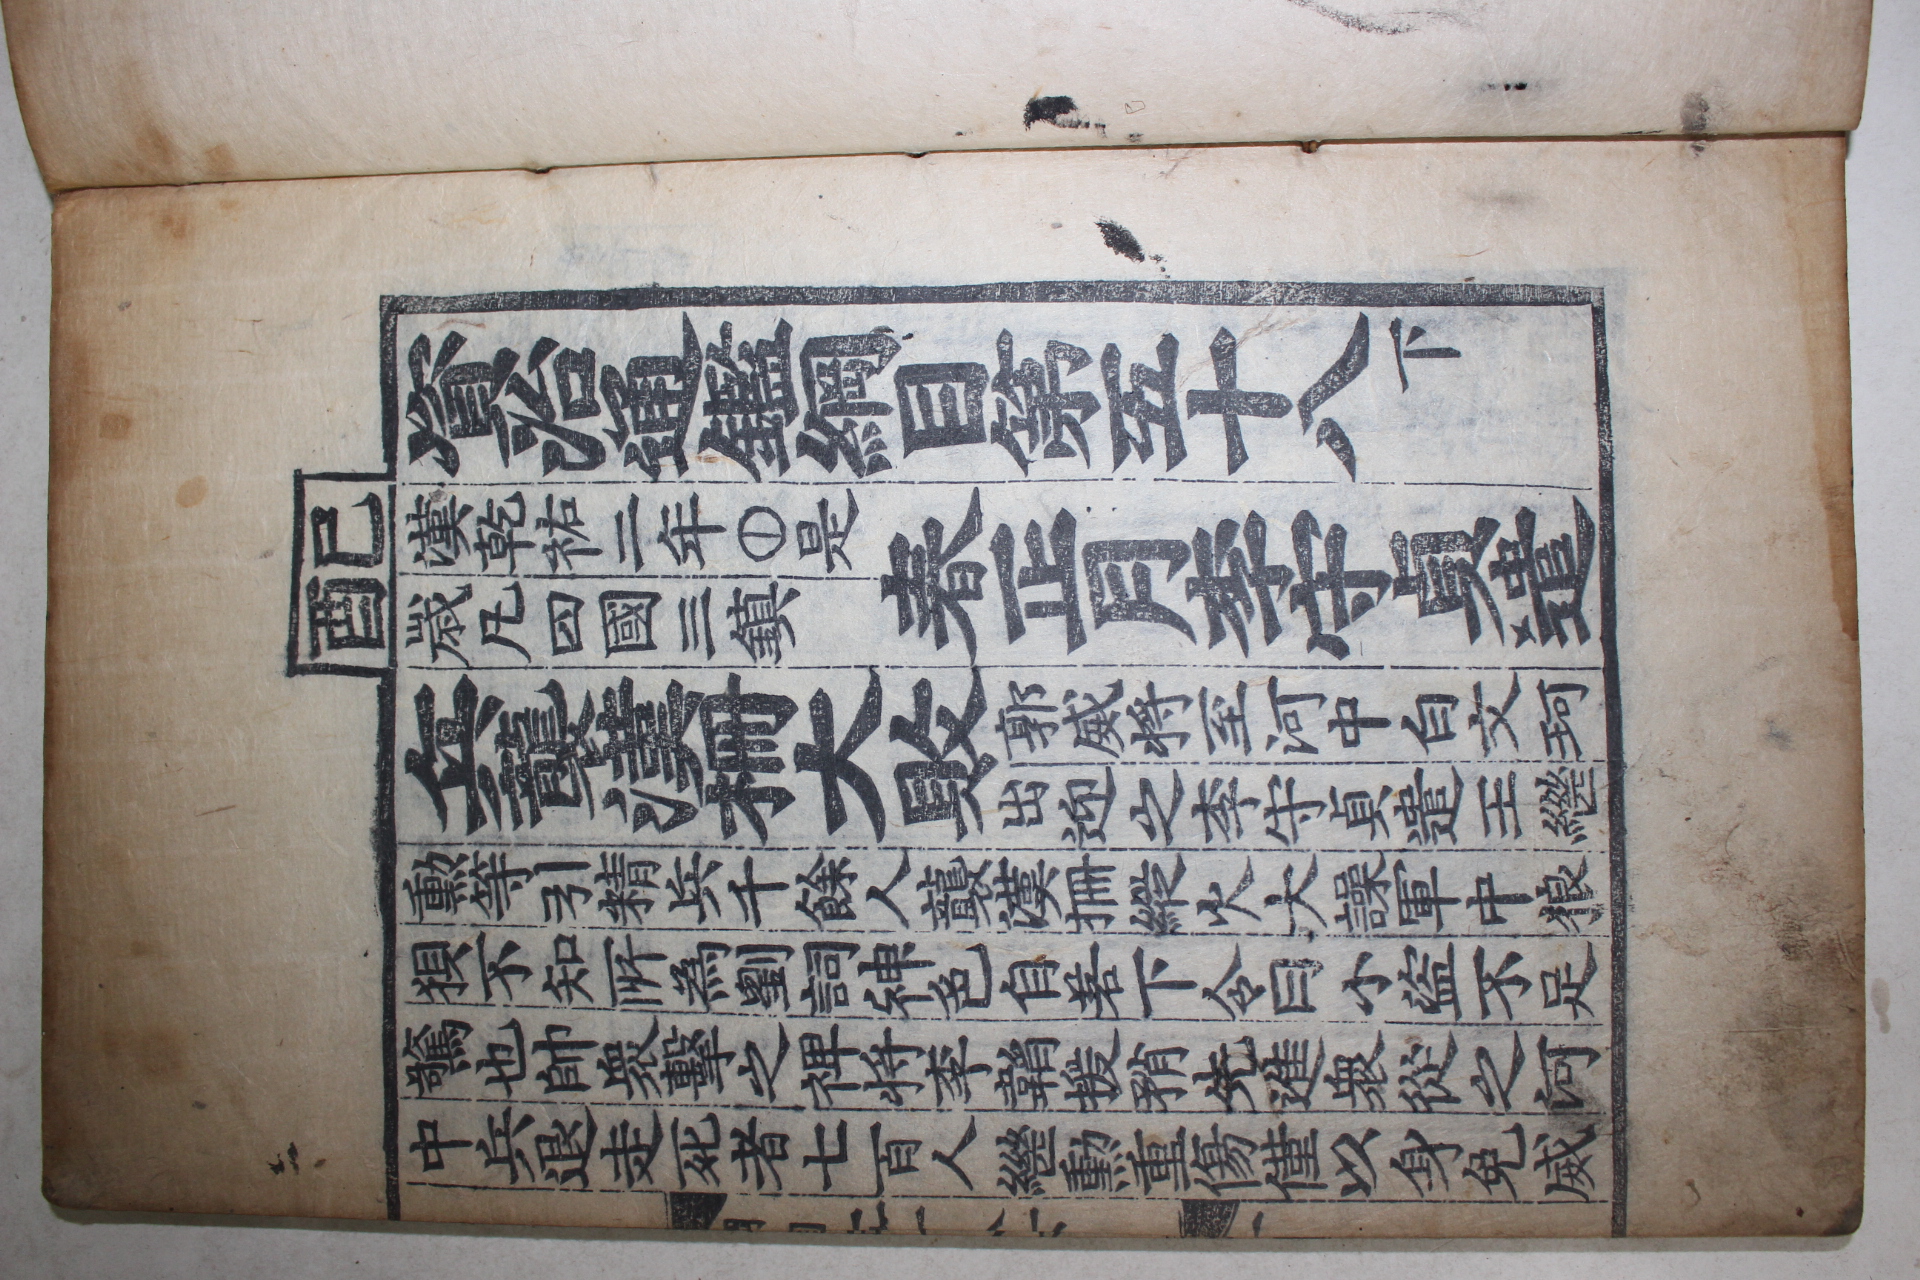 己酉
資治通鑑綱目第五十八下
漢乾祐二年○是
歲凡四國三鎮
春正月李守貞遣
兵襲漢柵大敗
郭威將至河中白文珂
出迎之李守貞遣王繼
勳等引精兵千餘人襲漢柵縱火大譟軍中狼
狽不知所為劉詞神色自若下令曰小盜不足
驚也帥衆擊之裨將李韜援矟先進衆從之河
中兵退走死者七百人繼勳重傷僅以身免威